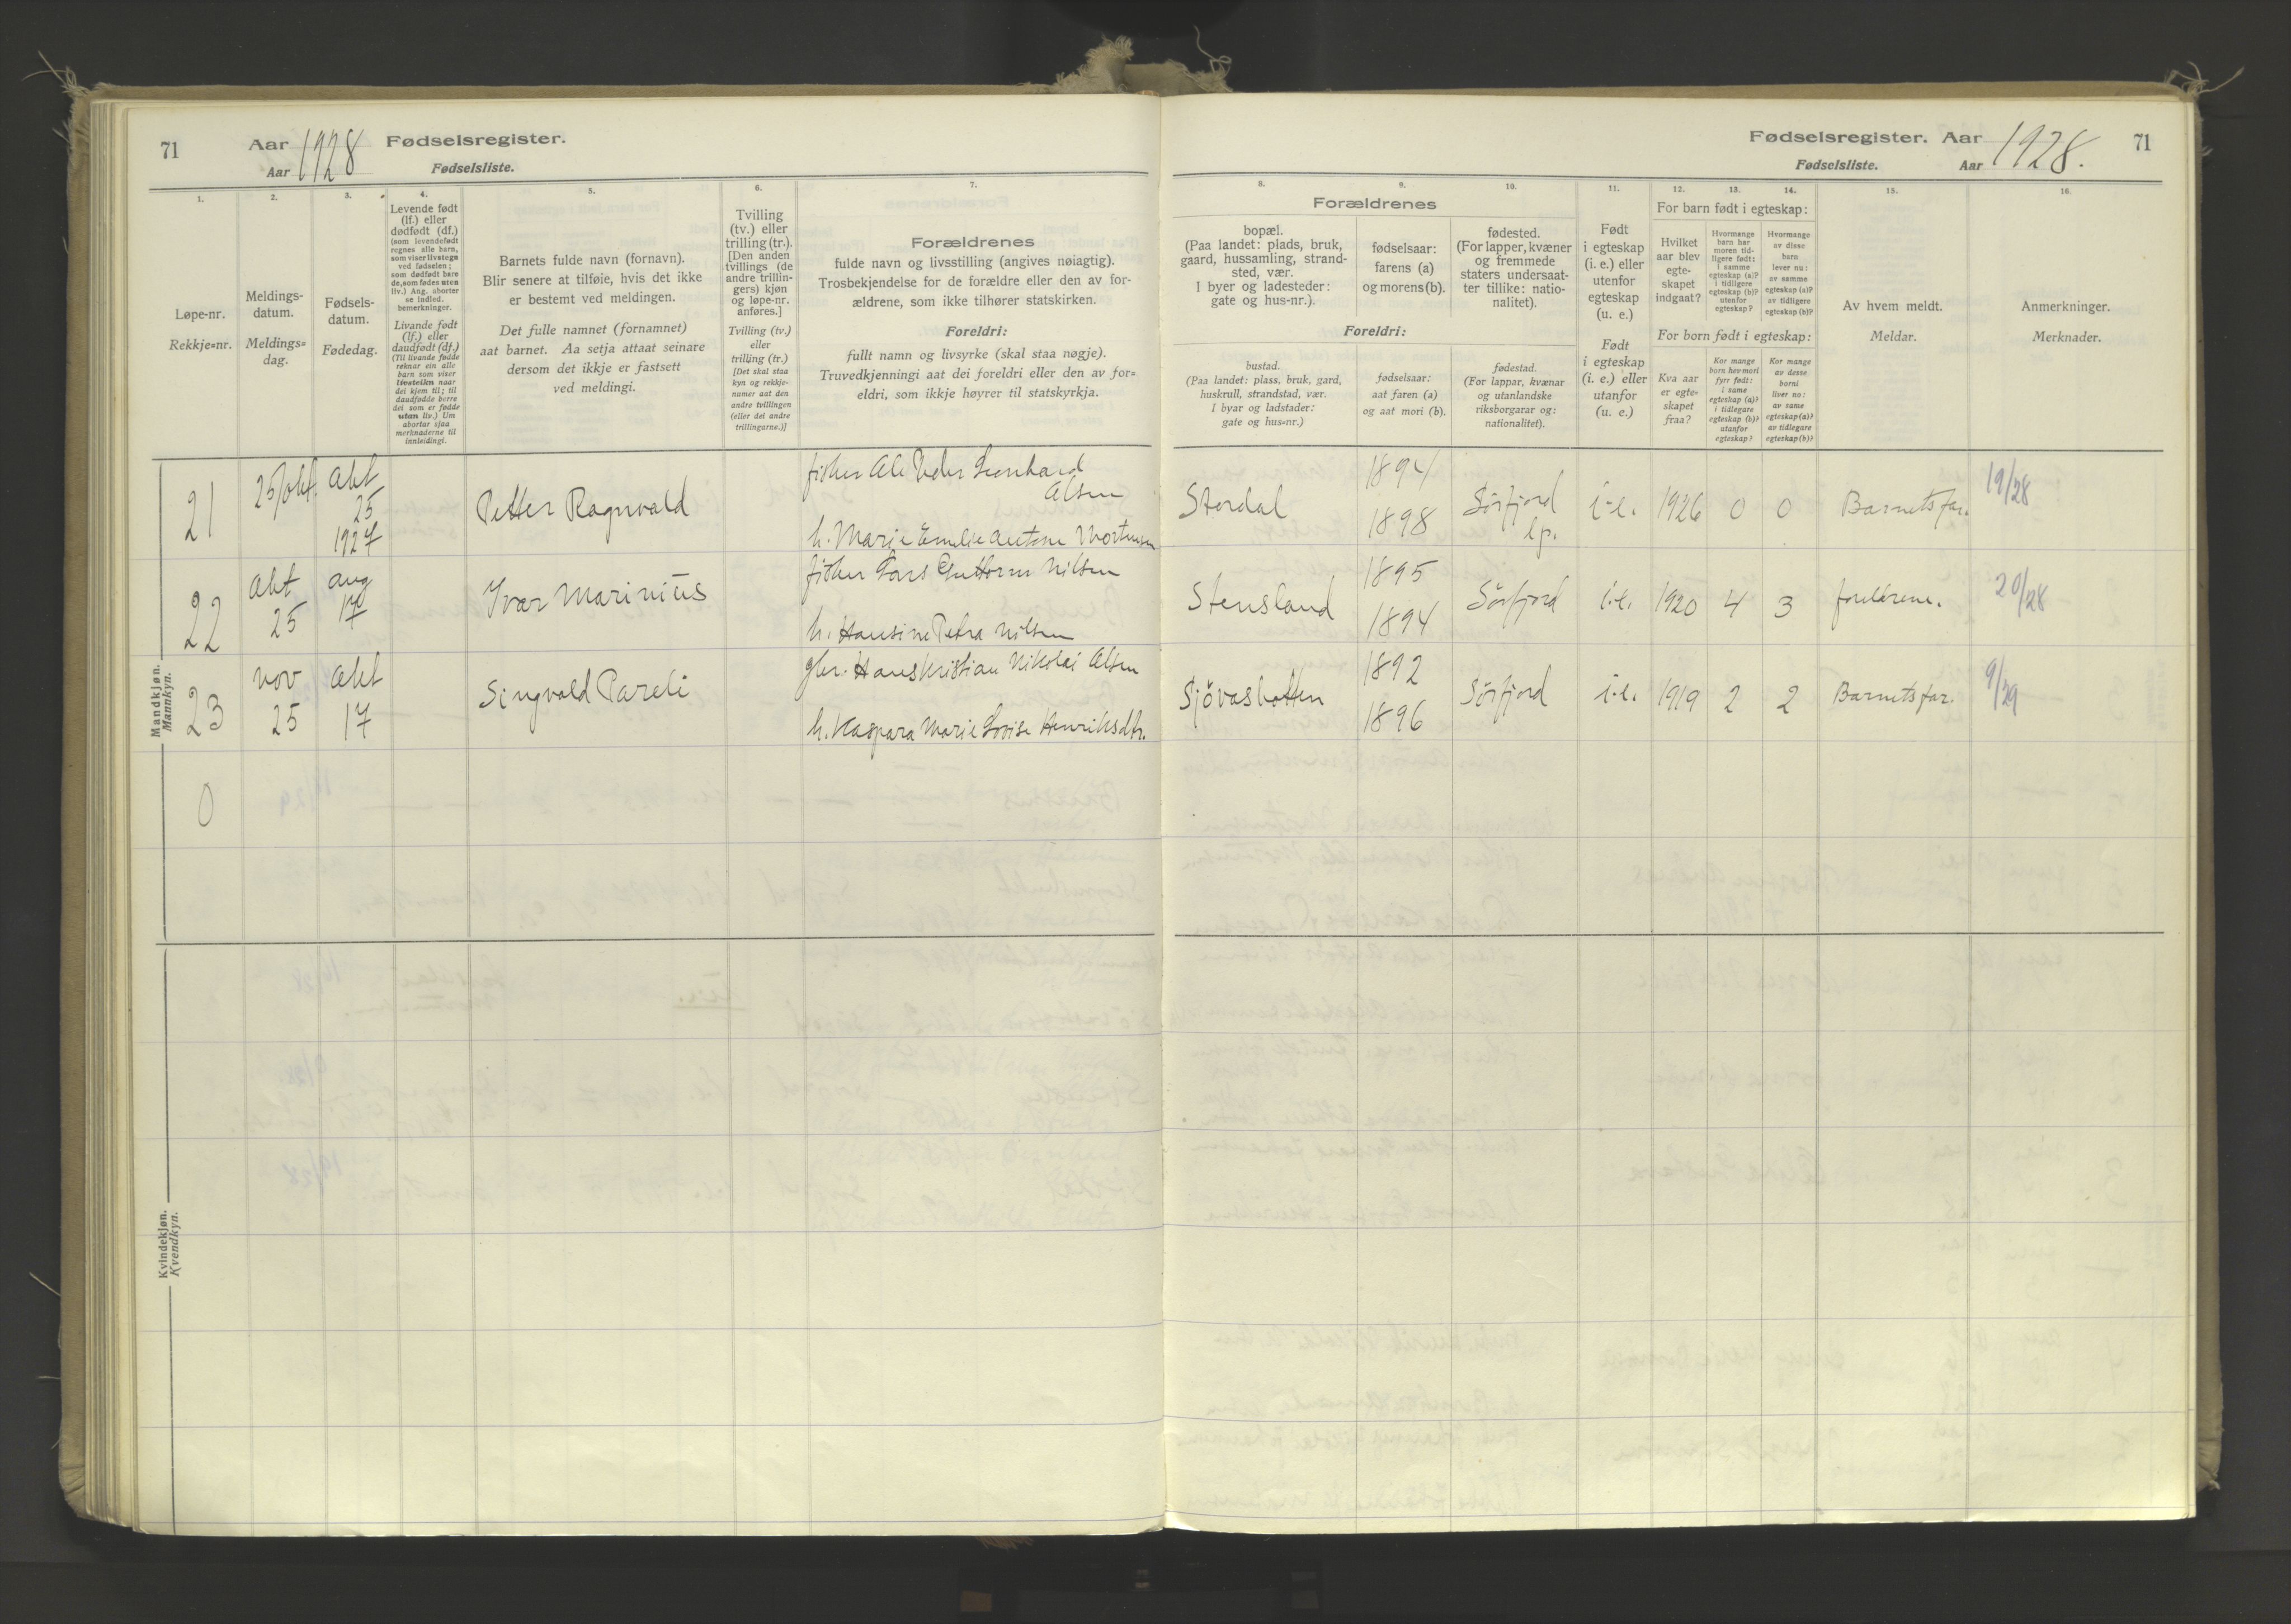 71
Aar 1928 Fødselsregister.
Aar Fødselsliste.
Fødselsregister. Aar 1928. 71
Fødselsliste. Aar
1. 2. 3. 4. 5. 6. 7.
Løpe-nr.
Rekkje=nr.
Meldings-
datum.
Meldings=
dag.
Fødsels-
datum.
Fødedag.
Levende født
(lf.) eller
dødfødt (df.)
(som levendefødt
regnes alle barn,
som viser livstegn
ved fødselen;
som dødfødt bare
de, som fødes uten
liv.) Ang. aborter
se indled.
bemerkninger.
Livande født
(lf.) eller
daudfødt (df.)
(Til livande fødde
reknar ein alle
barn som viser
livsteikn naar
dei kjem til; til
daudfødde berre
dei som er fødde
utan liv.) Um
abortar sjaa
merknaderne til
innleidingi.
Barnets fulde navn (fornavn).
Blir senere at tilføie, hvis det ikke
er bestemt ved meldingen.
Det fulle namnet (fornamnet)
aat barnet. Aa setja attaat seinare
dersom det ikkje er fastsett
ved meldingi.
Tvilling
(tv.) eller
trilling (tr.).
[Den anden
tvillings (de
andre trillin-
gers) kjøn
og løpe-nr.
anføres.]
Tvilling (tv.)
eller
trilling (tr.)
[Det skal staa
kyn og rekkje-
numer aat den
andre tvillingen
(eller dei andre
trillingarne.)]
Forældrenes
fulde navn og livsstilling (angives nøiagtig).
Trosbekjendelse for de forældre eller den av for-
ældrene, som ikke tilhører statskirken.
Foreldri:
fullt namn og livsyrke (skal staa nøgje).
Truvedkjenningi aat dei foreldri eller den av for=
eldri, som ikkje høyrer til statskyrkja.
8. 9. 10. 11. 12. 13. 14. 15. 16.
Forældrenes
bopæl.
(Paa landet: plads, bruk,
gaard, hussamling, strand-
sted, vær.
I byer og ladesteder:
gate og hus-nr.).
fødselsaar:
farens (a)
og morens (b).
fødested.
(For lapper, kvæner
og fremmede
staters undersaat-
ter tillike: natio-
nalitet).
Foreldri:
bustad.
(Paa landet: plass, bruk, gard,
huskrull, strandstad, vær.
I byar og ladstader:
gate og hus=nr.)
fødselsaar:
aat faren (a)
og aat mori (b).
fødestad.
(For lappar, kvænar
og utanlandske
riksborgarar og:
nationalitet).
Født
i egteskap
(i. e.) eller
utenfor
egteskap
(u. e.)
Født
i egteskap
(i. e.) eller
utanfor
(u. e.)
For barn født i egteskap:
Hvilket
aar blev
egte-
skapet
indgaat?
Hvormange
barn har
moren tid-
ligere født:
i samme
egteskap (a)?
i tidligere
egteskap (b)?
utenfor
egteskap?
Hvormange
av disse
barn
lever nu:
av samme
egteskap (a)?
av tidligere
egteskap (b)?
For born født i egteskap:
Kva aar
er egte-
skapet
fraa?
Kor mange
born hev mori
fyrr født:
i same
egteskap (a)?
i tidlegare
egteskap (b)?
utanfor
egteskap?
Kor mange
av desse
borni
liver no:
av same
egteskap (a)?
av tidlegare
egteskap (b)?
Av hvem meldt.
Meldar.
Anmerkninger.
Merknader.
Mandkjøn.
Mannkyn.
21 25/okt. Okt 25 1927 Petter Ragnvald
fisker Ole Peder Leonhard
Olsen
h. Marie Emelie Antone Mortensen
Stordal 1894 1898 Sörfjord lp. i.e. 1926 0 0 Barnets far. 19/28
22 Okt 25 aug 17 Ivar Marinius
fisker Lars Guttorm Nilsen
h. Hansine Petra Nilsen
Stensland 1895 1894 Sörfjord i.e. 1920 4 3 foreldrene. 20/28
23 nov 25 Okt 17 Singvald Pareli
gbr. Hans Kristian Nikolai Olsen
h. Kaspara Marie Lovise Henriksdtr.
Sjövasbotten 1892 1896 Sörfjord i.e. 1919 2 2 Barnets far. 9/29
0
Kvindekjøn.
Kvendkyn.